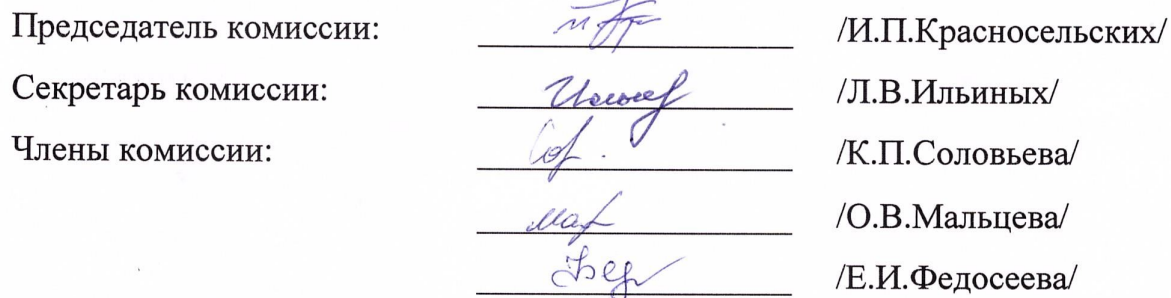 Председатель комиссии: /И.П.Красносельских/
Секретарь комиссии: /Л.В.Ильиных/
Члены комиссии: /К.П.Соловьева/
/О.В.Мальцева/
/Е.И.Федосеева/